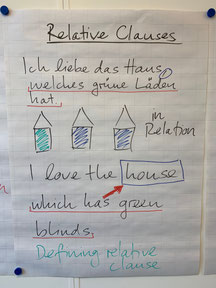 Relative Clauses
Ich liebe das Haus,
welches grüne Läden
hat.
in
Relation
I love the house
which has green
blinds.
Defining relative
clause